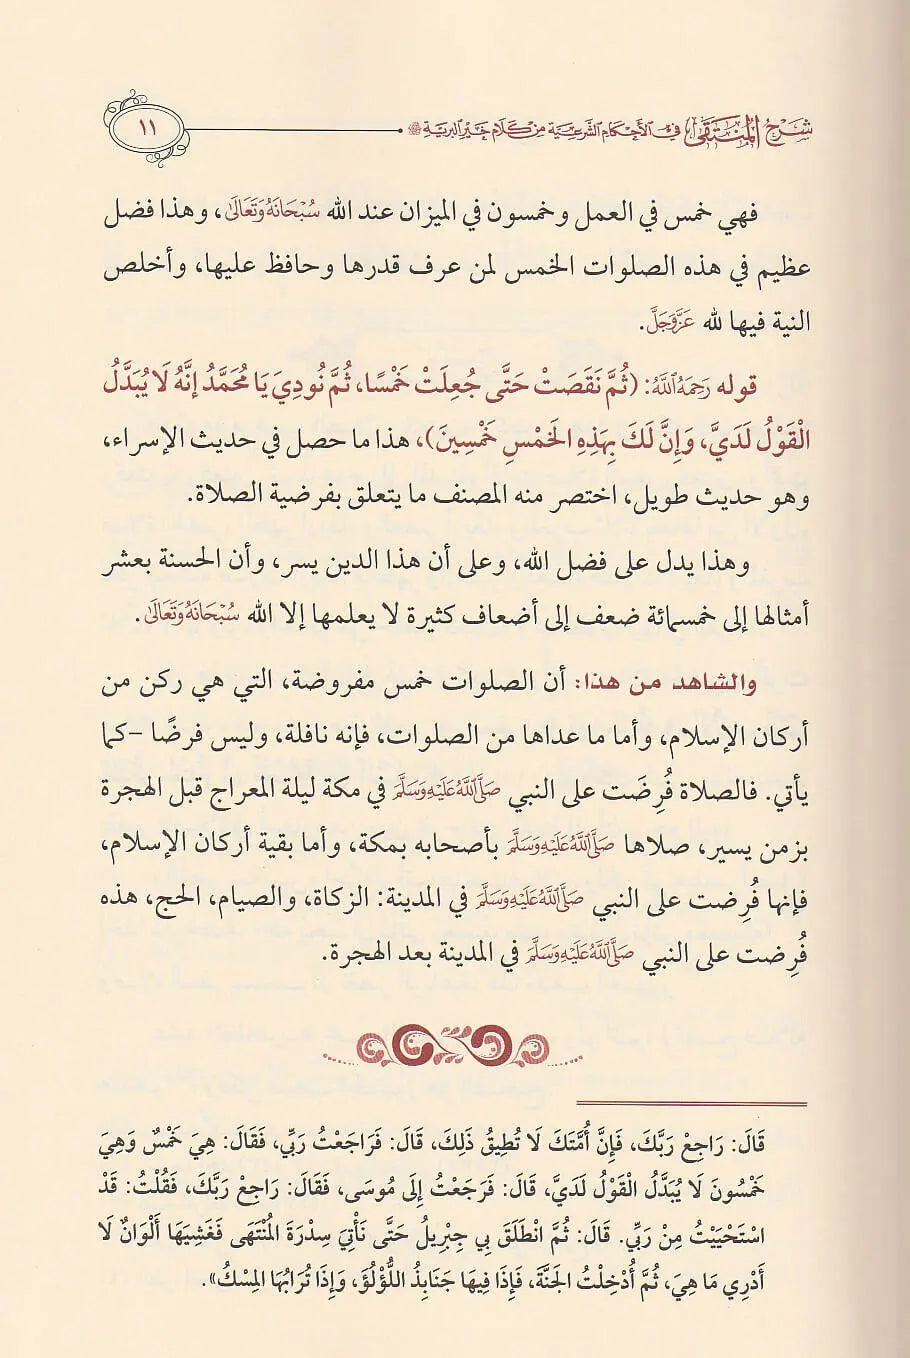 شرح المنتقى في الأحكام الشرعية من كلام خير البرية ﷺ
١١
فهي خمس في العمل وخمسون في الميزان عند الله سُبْحَانَهُ وَتَعَالَىٰ، وهذا فضل
عظيم في هذه الصلوات الخمس لمن عرف قدرها وحافظ عليها، وأخلص
النية فيها لله عَزَّوَجَلَّ.
قوله رَحِمَهُ اللَّهُ: (ثُمَّ نَقَصَتْ حَتَّى جُعِلَتْ خَمْسًا، ثُمَّ نُودِيَ يَا مُحَمَّدُ إِنَّهُ لَا يُبَدَّلُ
الْقَوْلُ لَدَيَّ، وَإِنَّ لَكَ بِهَذِهِ الخَمْسِ خَمْسِينَ)، هذا ما حصل في حديث الإسراء،
وهو حديث طويل، اختصر منه المصنف ما يتعلق بفرضية الصلاة.
وهذا يدل على فضل الله، وعلى أن هذا الدين يسر، وأن الحسنة بعشر
أمثالها إلى خمسمائة ضعف إلى أضعاف كثيرة لا يعلمها إلا الله سُبْحَانَهُ وَتَعَالَىٰ.
والشاهد من هذا: أن الصلوات خمس مفروضة، التي هي ركن من
أركان الإسلام، وأما ما عداها من الصلوات، فإنه نافلة، وليس فرضًا –كما
يأتي. فالصلاة فُرِضَت على النبي صَلَّى اللَّهُ عَلَيْهِ وَسَلَّمَ في مكة ليلة المعراج قبل الهجرة
بزمن يسير، صلاها صَلَّى اللَّهُ عَلَيْهِ وَسَلَّمَ بأصحابه بمكة، وأما بقية أركان الإسلام،
فإنها فُرِضت على النبي صَلَّى اللَّهُ عَلَيْهِ وَسَلَّمَ في المدينة: الزكاة، والصيام، الحج، هذه
فُرِضت على النبي صَلَّى اللَّهُ عَلَيْهِ وَسَلَّمَ في المدينة بعد الهجرة.
قَالَ: رَاجِعْ رَبَّكَ، فَإِنَّ أُمَّتَكَ لَا تُطِيقُ ذَلِكَ، قَالَ: فَرَاجَعْتُ رَبِّي، فَقَالَ: هِيَ خَمْسٌ وَهِيَ
خَمْسُونَ لَا يُبَدَّلُ القَوْلُ لَدَيَّ، قَالَ: فَرَجَعْتُ إِلَى مُوسَى، فَقَالَ: رَاجِعْ رَبَّكَ، فَقُلْتُ: قَدْ
اسْتَحْيَيْتُ مِنْ رَبِّي. قَالَ: ثُمَّ انْطَلَقَ بِي جِبْرِيلُ حَتَّى نَأْتِيَ سِدْرَةَ المُنْتَهَى فَغَشِيَهَا أَلْوَانٌ لَا
أَدْرِي مَا هِيَ، ثُمَّ أُدْخِلْتُ الجَنَّةَ، فَإِذَا فِيهَا جَنَابِذُ اللُّؤْلُؤَ، وَإِذَا تُرَابُهَا المِسْكُ».